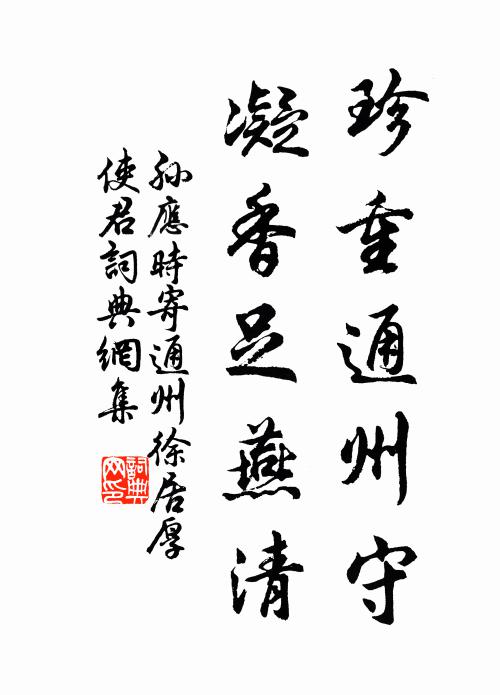 珍重通州守
凝香足燕清
孙應時寄通州徐居厚
使君詞典網集
詞典网印